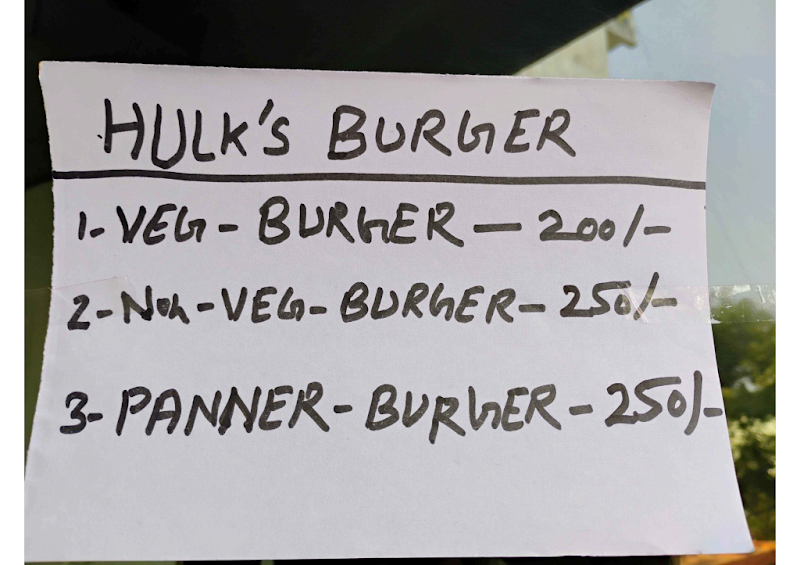 HULK'S BURGER
1- VEG - BURGER — 200/-
2- Non - VEG - BURGER - 250/-
3- PANNER - BURGER - 250/-